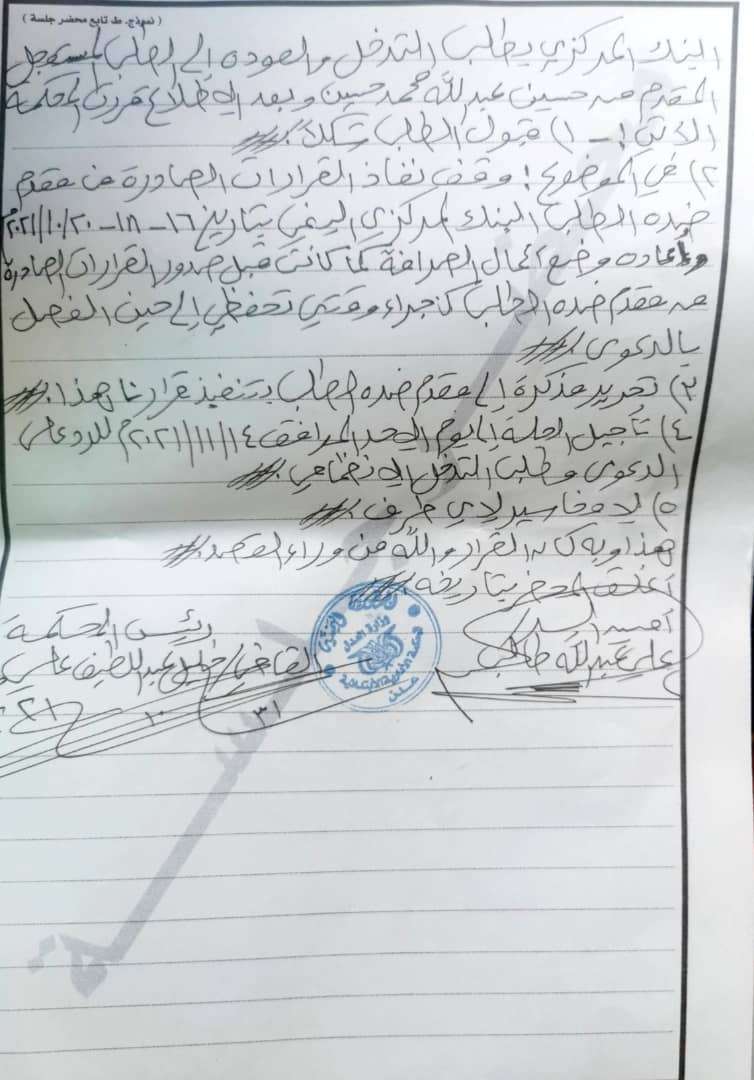 ( نموذج. ط تابع محضر جلسة )
البنك المركزي يطلب التدخل والعوده الى الطلب المستعجل
المقدم من حسين عبدالله محمد حسين وبعد الاطلاع قررت المحكمة
الاتي :- ١) قبول الطلب شكلاً .
٢) في الموضوع : وقف نفاذ القرارات الصادرة من مقدم
ضده الطلب البنك المركزي اليمني بتاريخ ١٦-١٨-٢٠/١٠/٢٠٢١م
واعاده وضع اعمال الصرافة كما كانت قبل صدور القرارات الصادرة
من مقدم ضده الطلب كإجراء وقتي تحفظي إلى حين الفصل
بالدعوى .
٣) تحرير مذكرة إلى مقدم ضده الطلب بتنفيذ قرارنا هذا .
٤) تأجيل الجلسة إلى يوم الاحد الموافق ١٤/١١/٢٠٢١م للرد على
الدعوى وطلب التدخل الانضمامي .
٥) لا مخاسير لاي طرف .
هذا وبه كان القرار والله من وراء القصد .
أغلق المحضر بتاريخه .
أمين السر
علي عبدالله طالب
رئيس المحكمة
القاضي/ عبداللطيف علي
٣١
وزارة العدل
عدن
محضر جلسة